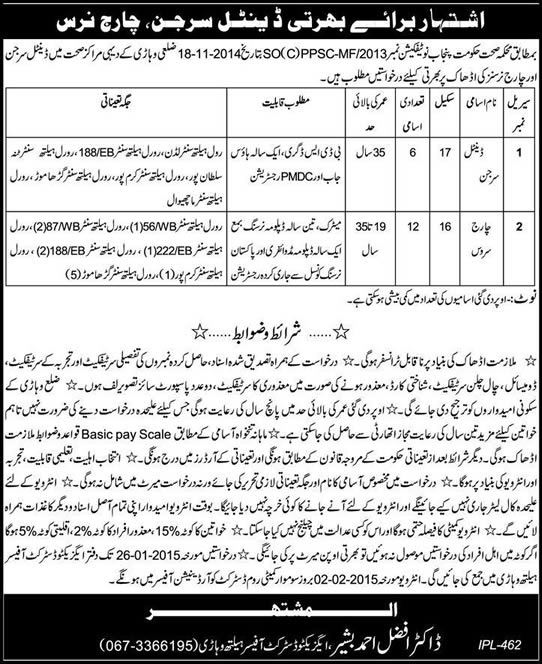 اشتہار برائے بھرتی ڈینٹل سرجن، چارج نرس
بمطابق محکمہ صحت حکومت پنجاب نوٹیفکیشن نمبر SO(C)PPSC-MF/2013 بتاریخ 18-11-2014 ضلعی وہاڑی کے دیہی مراکز صحت میں ڈینٹل سرجن
اور چارج نرسز کی اڈھاک پر بھرتی کیلئے درخواستیں مطلوب ہیں۔
سیریل نمبر | نام اسامی | سکیل | تعدادی اسامی | عمر کی بالائی حد | مطلوب قابلیت | جگہ تعیناتی
1 | ڈینٹل سرجن | 17 | 6 | 35 سال | بی ڈی ایس ڈگری، ایک سالہ ہاؤس جاب اور PMDC رجسٹریشن | رورل ہیلتھ سنٹر لڈن، رورل ہیلتھ سنٹر 188/EB، رورل ہیلتھ سنٹر ٹھٹہ سلطان پور، رورل ہیلتھ سنٹر کرم پور، رورل ہیلتھ سنٹر گڑھا موڑ، رورل ہیلتھ سنٹر ماچھیوال
2 | چارج سروس | 16 | 12 | 19 تا 35 سال | میٹرک، تین سالہ ڈپلومہ نرسنگ بمع ایک سالہ ڈپلومہ مڈوائفری اور پاکستان نرسنگ کونسل سے جاری کردہ رجسٹریشن | رورل ہیلتھ سنٹر 56/WB(1)، رورل ہیلتھ سنٹر 87/WB(2)، رورل ہیلتھ سنٹر 222/EB(1)، رورل ہیلتھ سنٹر 188/EB(2)، رورل ہیلتھ سنٹر کرم پور (1)، رورل ہیلتھ سنٹر گڑھا موڑ (5)
نوٹ:۔ اوپر دی گئی اسامیوں کی تعداد میں کمی بیشی ہو سکتی ہے۔
☆...... شرائط و ضوابط ......☆
☆ ملازمت اڈھاک کی بنیاد پر ناقابل ٹرانسفر ہوگی۔ ☆ درخواست کے ہمراہ تصدیق شدہ اسناد، حاصل کردہ نمبروں کی تفصیلی سرٹیفکیٹ اور تجربہ کے سرٹیفکیٹ،
ڈومیسائل، چال چلن سرٹیفکیٹ، شناختی کارڈ، معذور ہونے کی صورت میں معذوری کا سرٹیفکیٹ، دو عدد پاسپورٹ سائز تصویر لف ہوں۔ ☆ ضلع وہاڑی کے
سکونتی امیدواروں کو ترجیح دی جائے گی۔ ☆ اوپر دی گئی عمر کی بالائی حد میں پانچ سال کی رعایت ہوگی جس کیلئے علیحدہ درخواست دینے کی ضرورت نہیں تاہم
خواتین کیلئے مزید تین سال کی رعایت مجاز اتھارٹی سے حاصل کی جا سکتی ہے۔ ☆ ماہانہ تنخواہ آسامی کے مطابق Basic pay Scale قواعد و ضوابط ملازمت
اڈھاک ہوگی۔ دیگر شرائط بعد از تعیناتی حکومت کے مروجہ قانون کے مطابق ہونگی اور تعیناتی کے آرڈرز میں درج ہونگی۔ ☆ انتخاب اہلیت، تعلیمی قابلیت، تجربہ
اور انٹرویو کی بنیاد پر ہوگا۔ ☆ درخواست میں مخصوص آسامی کا نام اور جگہ تعیناتی لازمی تحریر کی جائے ورنہ درخواست میرٹ میں شامل نہ ہوگی۔ ☆ انٹرویو کے لئے
علیحدہ کال لیٹر جاری نہیں کیے جائینگے اور انٹرویو کے لئے آنے جانے کا کوئی خرچہ نہیں دیا جائیگا۔ بوقت انٹرویو امیدوار اپنی تمام اصل اسناد و دیگر کاغذات ہمراہ
لائیں گے۔ ☆ انٹرویو کمیٹی کا فیصلہ حتمی ہوگا اور اس کو کسی عدالت میں چیلنج نہیں کیا جا سکتا۔ ☆ خواتین کا کوٹہ 15%، معذور افراد کا کوٹہ 2%، اقلیتی کوٹہ 5% ہوگا
اگر کوٹہ میں اہل افراد کی درخواستیں موصول نہ ہوئیں تو بھرتی اوپن میرٹ پر کی جائیگی۔ ☆ درخواستیں مورخہ 26-01-2015 تک دفتر ایگزیکٹو ڈسٹرکٹ آفیسر
ہیلتھ وہاڑی میں جمع کی جائیں گی۔ ☆ انٹرویو مورخہ 02-02-2015 بروز سوموار کمیٹی روم ڈسٹرکٹ کوآرڈینیشن آفیسر میں ہونگے۔
المشتھر
ڈاکٹر افضل احمد بشیر، ایگزیکٹو ڈسٹرکٹ آفیسر ہیلتھ وہاڑی (067-3366195)
IPL-462